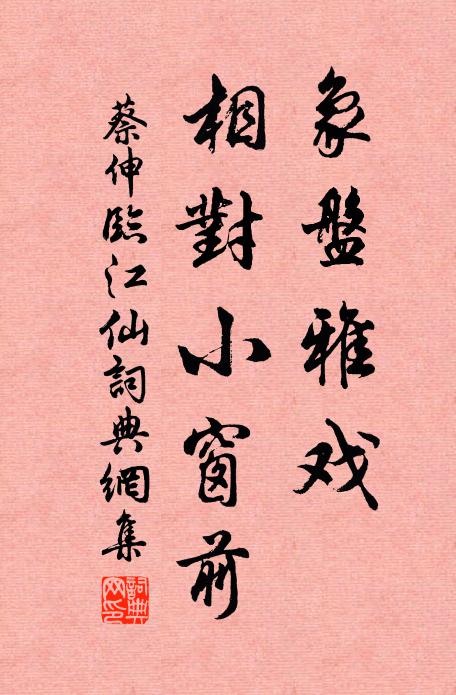 象盤雅戏
相對小窗前
蔡伸臨江仙詞典網集
詞典
网印